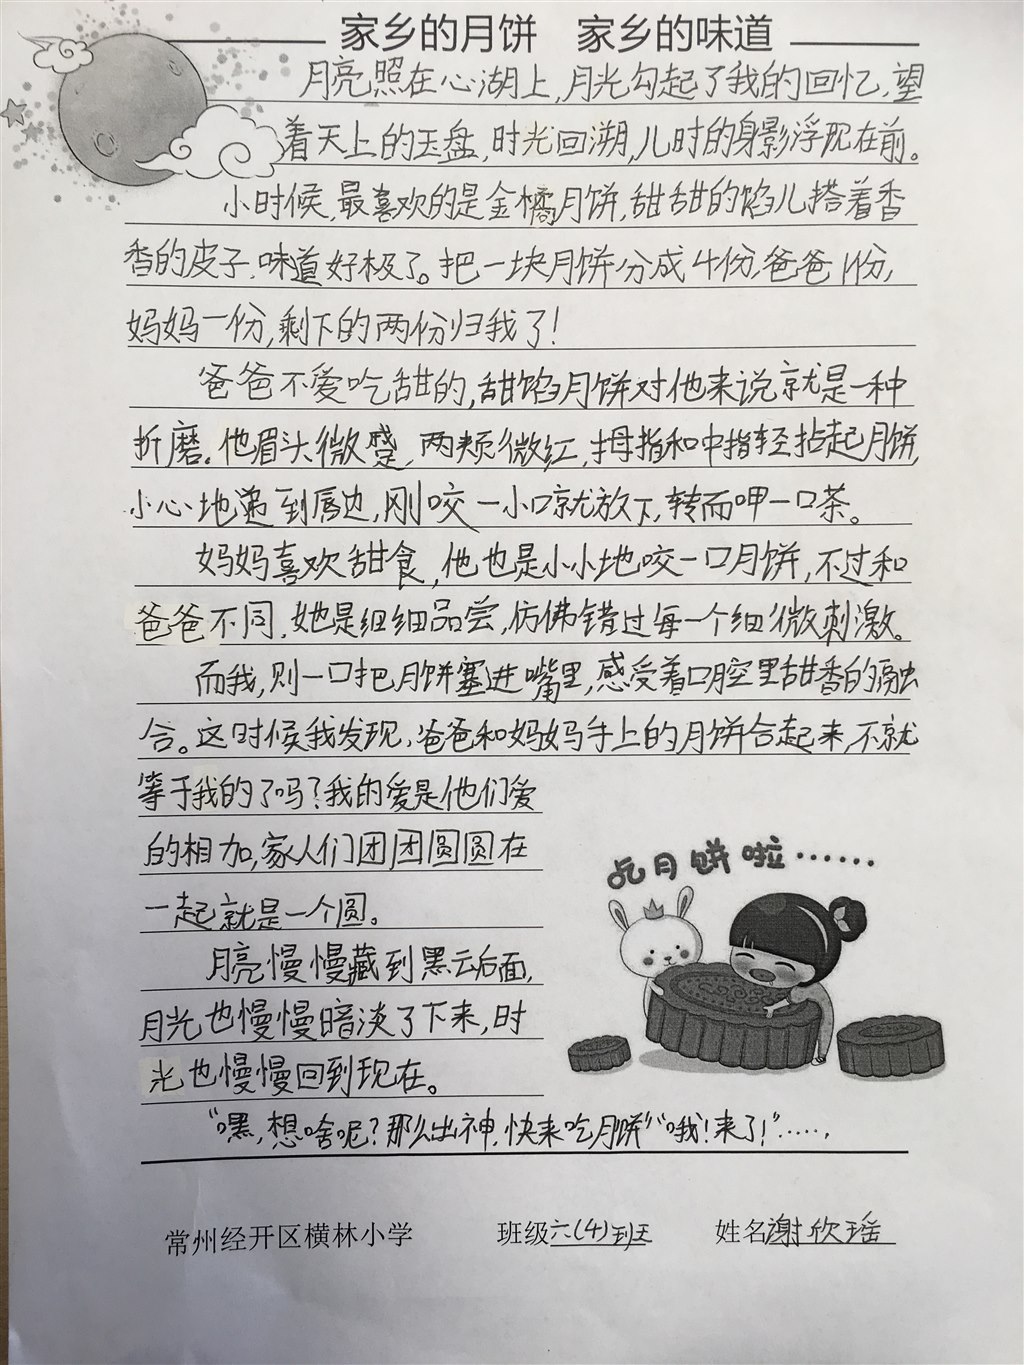 家乡的月饼 家乡的味道
月亮照在心湖上,月光勾起了我的回忆,望
着天上的玉盘,时光回溯,儿时的身影浮现在前。
小时候,最喜欢的是金橘月饼,甜甜的馅儿搭着香
香的皮子,味道好极了。把一块月饼分成4份,爸爸1份,
妈妈一份,剩下的两份归我了!
爸爸不爱吃甜的,甜馅月饼对他来说就是一种
折磨。他眉头微蹙,两颊微红,拇指和中指轻拈起月饼,
小心地递到唇边,刚咬一小口就放下,转而呷一口茶。
妈妈喜欢甜食,他也是小小地咬一口月饼,不过和
爸爸不同,她是细细品尝,仿佛错过每一个细微刺激。
而我,则一口把月饼塞进嘴里,感受着口腔里甜香的融
合。这时候我发现,爸爸和妈妈手上的月饼合起来,不就
等于我的了吗?我的爱是他们爱
的相加,家人们团团圆圆在
一起就是一个圆。
月亮慢慢藏到黑云后面,
月光也慢慢暗淡了下来,时
光也慢慢回到现在。
“嘿,想啥呢?那么出神,快来吃月饼”“哦!来了!”……
吃月饼啦……
常州经开区横林小学 班级六(4)班 姓名谢欣瑶